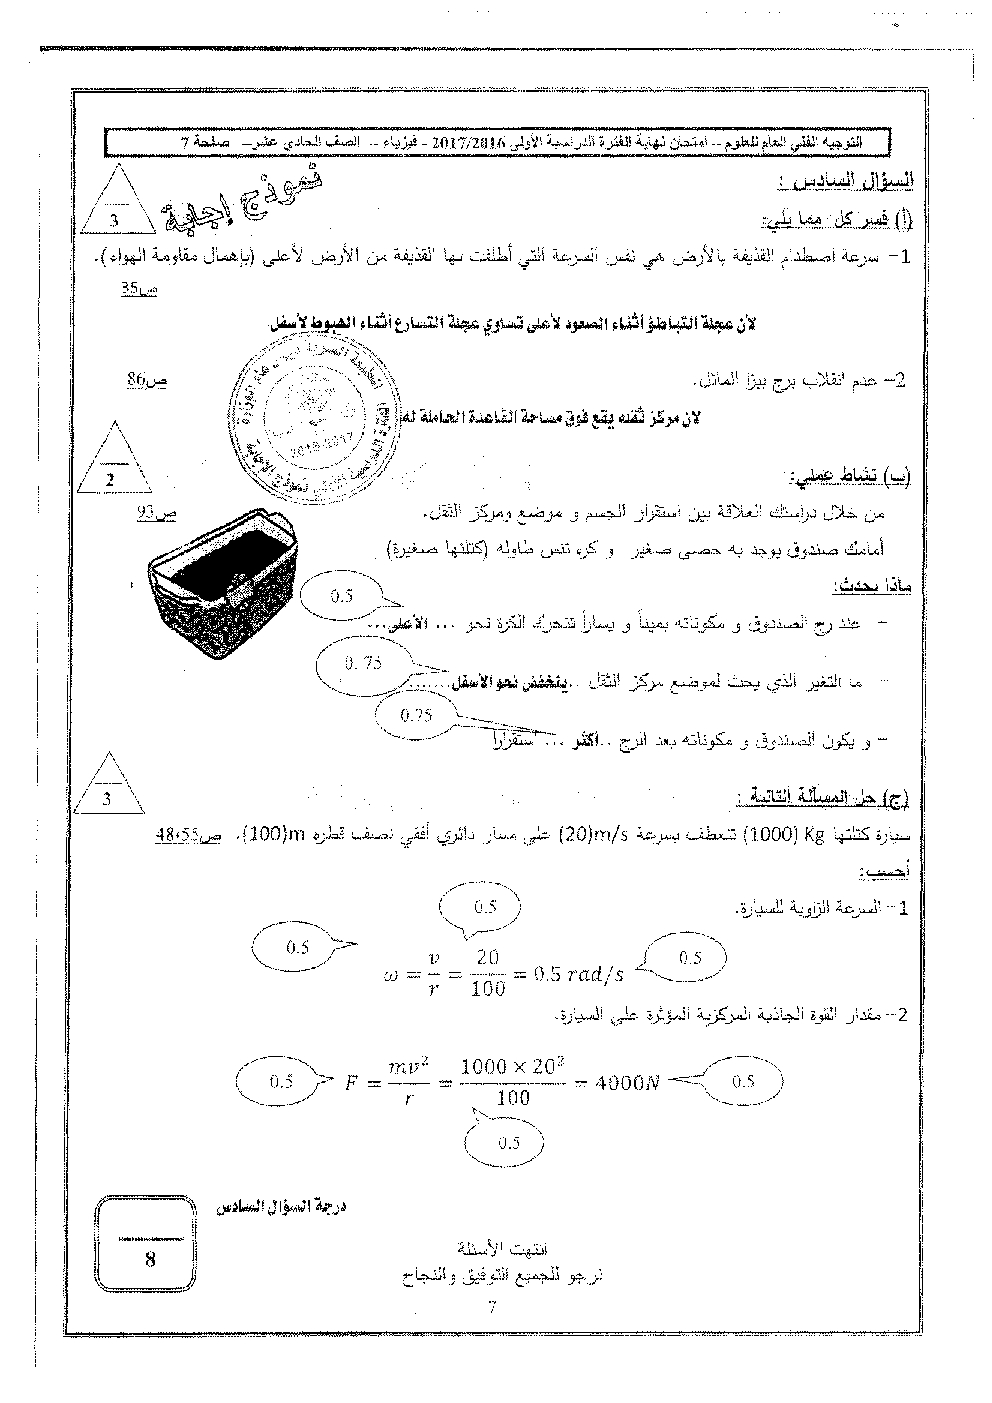 التوجيه الفني العام للعلوم -- امتحان نهاية الفترة الدراسية الأولى 2017/2016 - فيزياء -- الصف الحادي عشر -- صفحة 7
السؤال السادس :
نموذج إجابة
3
(أ) فسر كل مما يلي:
1- سرعة اصطدام القذيفة بالأرض هي نفس السرعة التي أطلقت بها القذيفة من الأرض لأعلى (بإهمال مقاومة الهواء).
ص35
لأن عجلة التباطؤ أثناء الصعود لأعلى تساوي عجلة التسارع أثناء الهبوط لأسفل
2- عدم انقلاب برج بيزا المائل.
ص86
لان مركز ثقله يقع فوق مساحة القاعدة الحاملة له
2018-2017
2
(ب) نشاط عملي:
من خلال دراستك العلاقة بين استقرار الجسم و موضع ومركز الثقل.
ص93
أمامك صندوق يوجد به حصى صغير و كرة تنس طاوله (كتلتها صغيرة)
ماذا يحدث:
0.5
- عند رج الصندوق و مكوناته يميناً و يساراً تتحرك الكرة نحو ... الأعلى...
0.75
- ما التغير الذي يحث لموضع مركز الثقل ..ينخفض نحو الأسفل.......
0.75
- و يكون الصندوق و مكوناته بعد الرج ..اكثر ... استقرارا
3
(ج) حل المسألة التالية :
سيارة كتلتها Kg (1000) تنعطف بسرعة m/s(20) على مسار دائري أفقي نصف قطره m(100). ص48،55
أحسب:
1- السرعة الزاوية للسيارة.
0.5
0.5
0.5
ω = v/r = 20/100 = 0.5 rad/s
2- مقدار القوة الجاذبة المركزية المؤثرة علي السيارة.
0.5
F = mv²/r = 1000 × 20²/100 = 4000N
0.5
0.5
درجة السؤال السادس
8
انتهت الأسئلة
نرجو للجميع التوفيق والنجاح
7